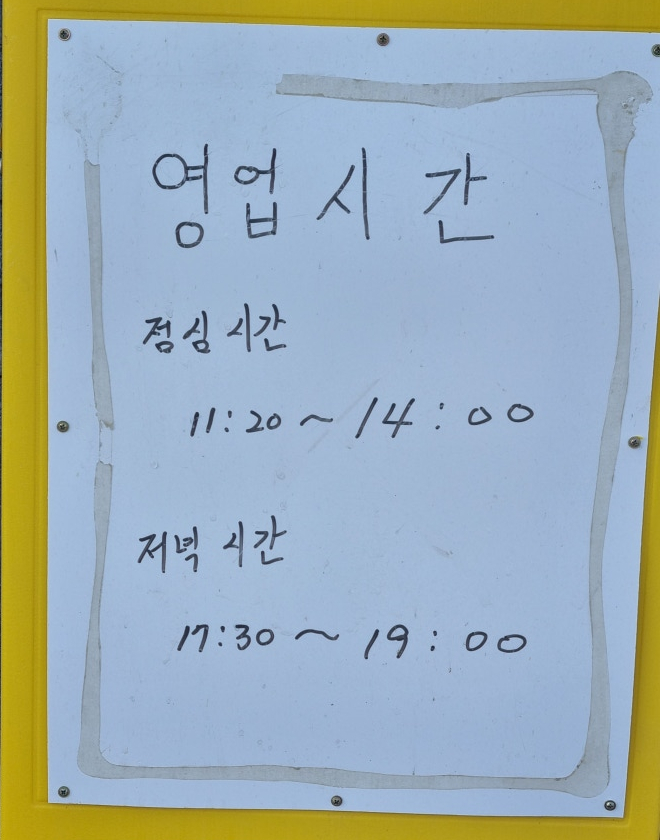 영업시간
점심 시간
11:20 ~ 14:00
저녁 시간
17:30 ~ 19:00